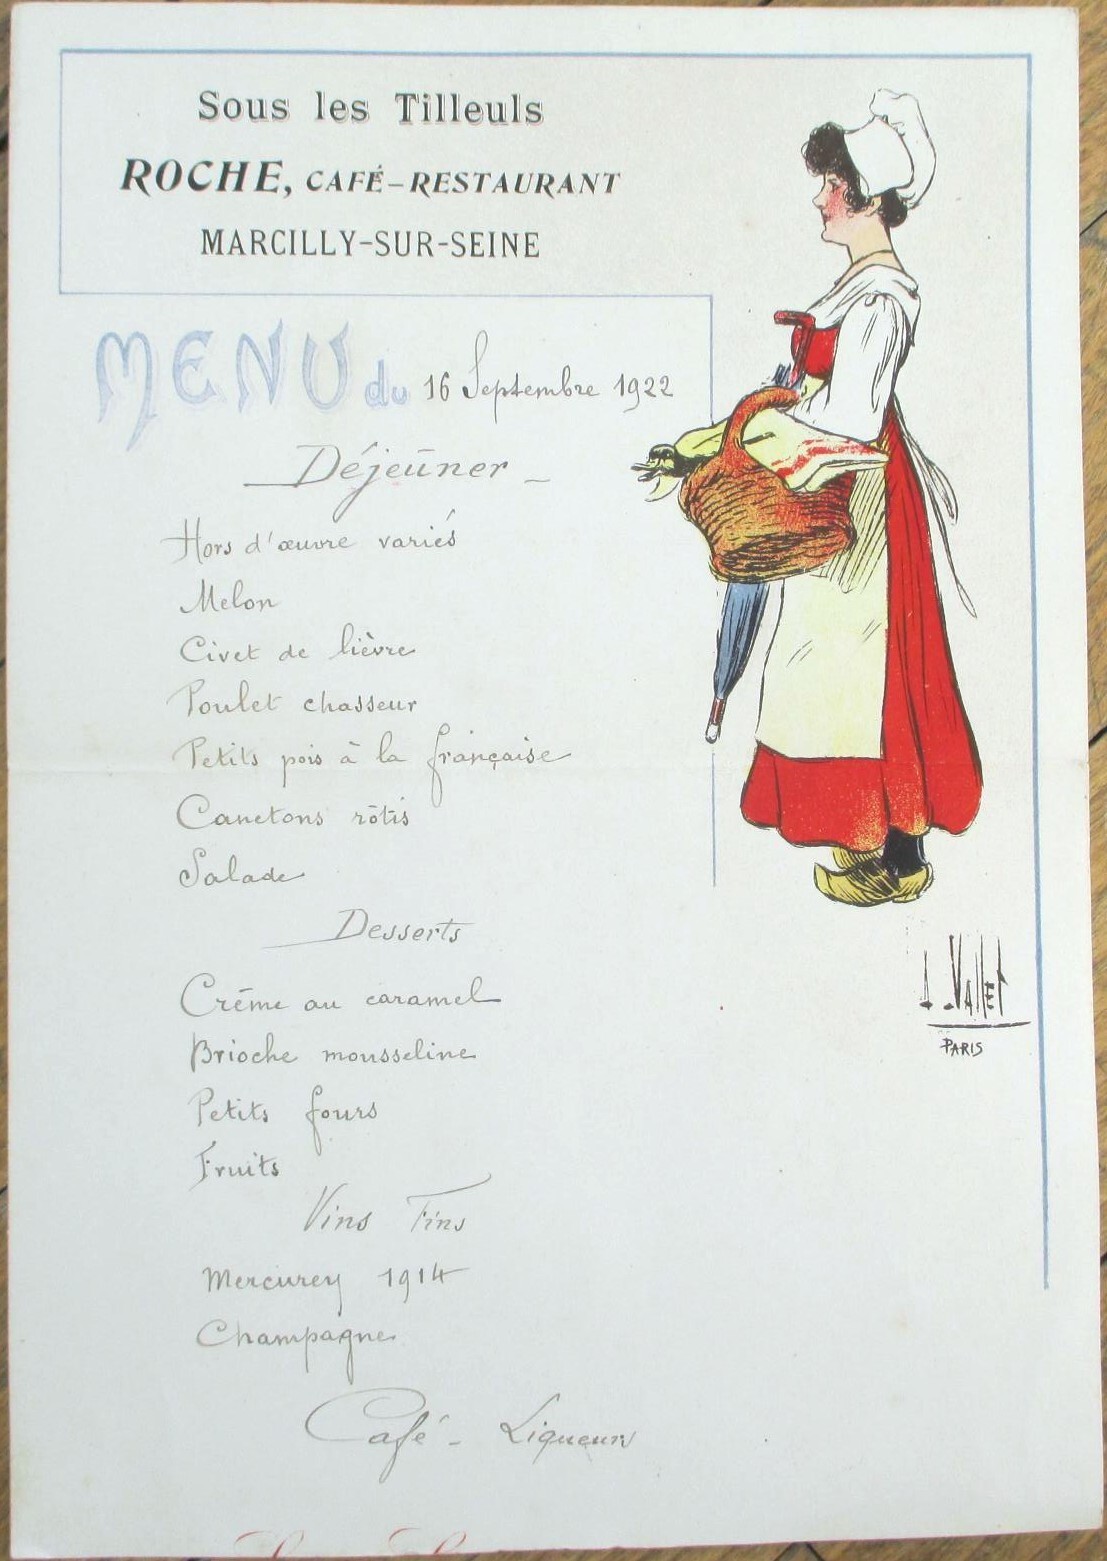 Sous les Tilleuls
ROCHE, CAFÉ-RESTAURANT
MARCILLY-SUR-SEINE
MENU du 16 Septembre 1922
Déjeûner
Hors d'œuvre variés
Melon
Civet de lièvre
Poulet chasseur
Petits pois à la française
Canetons rôtis
Salade
Desserts
Crême au caramel
Brioche mousseline
Petits fours
Fruits
Vins Fins
Mercurey 1914
Champagne
Café - Liqueurs
Vallet
PARIS